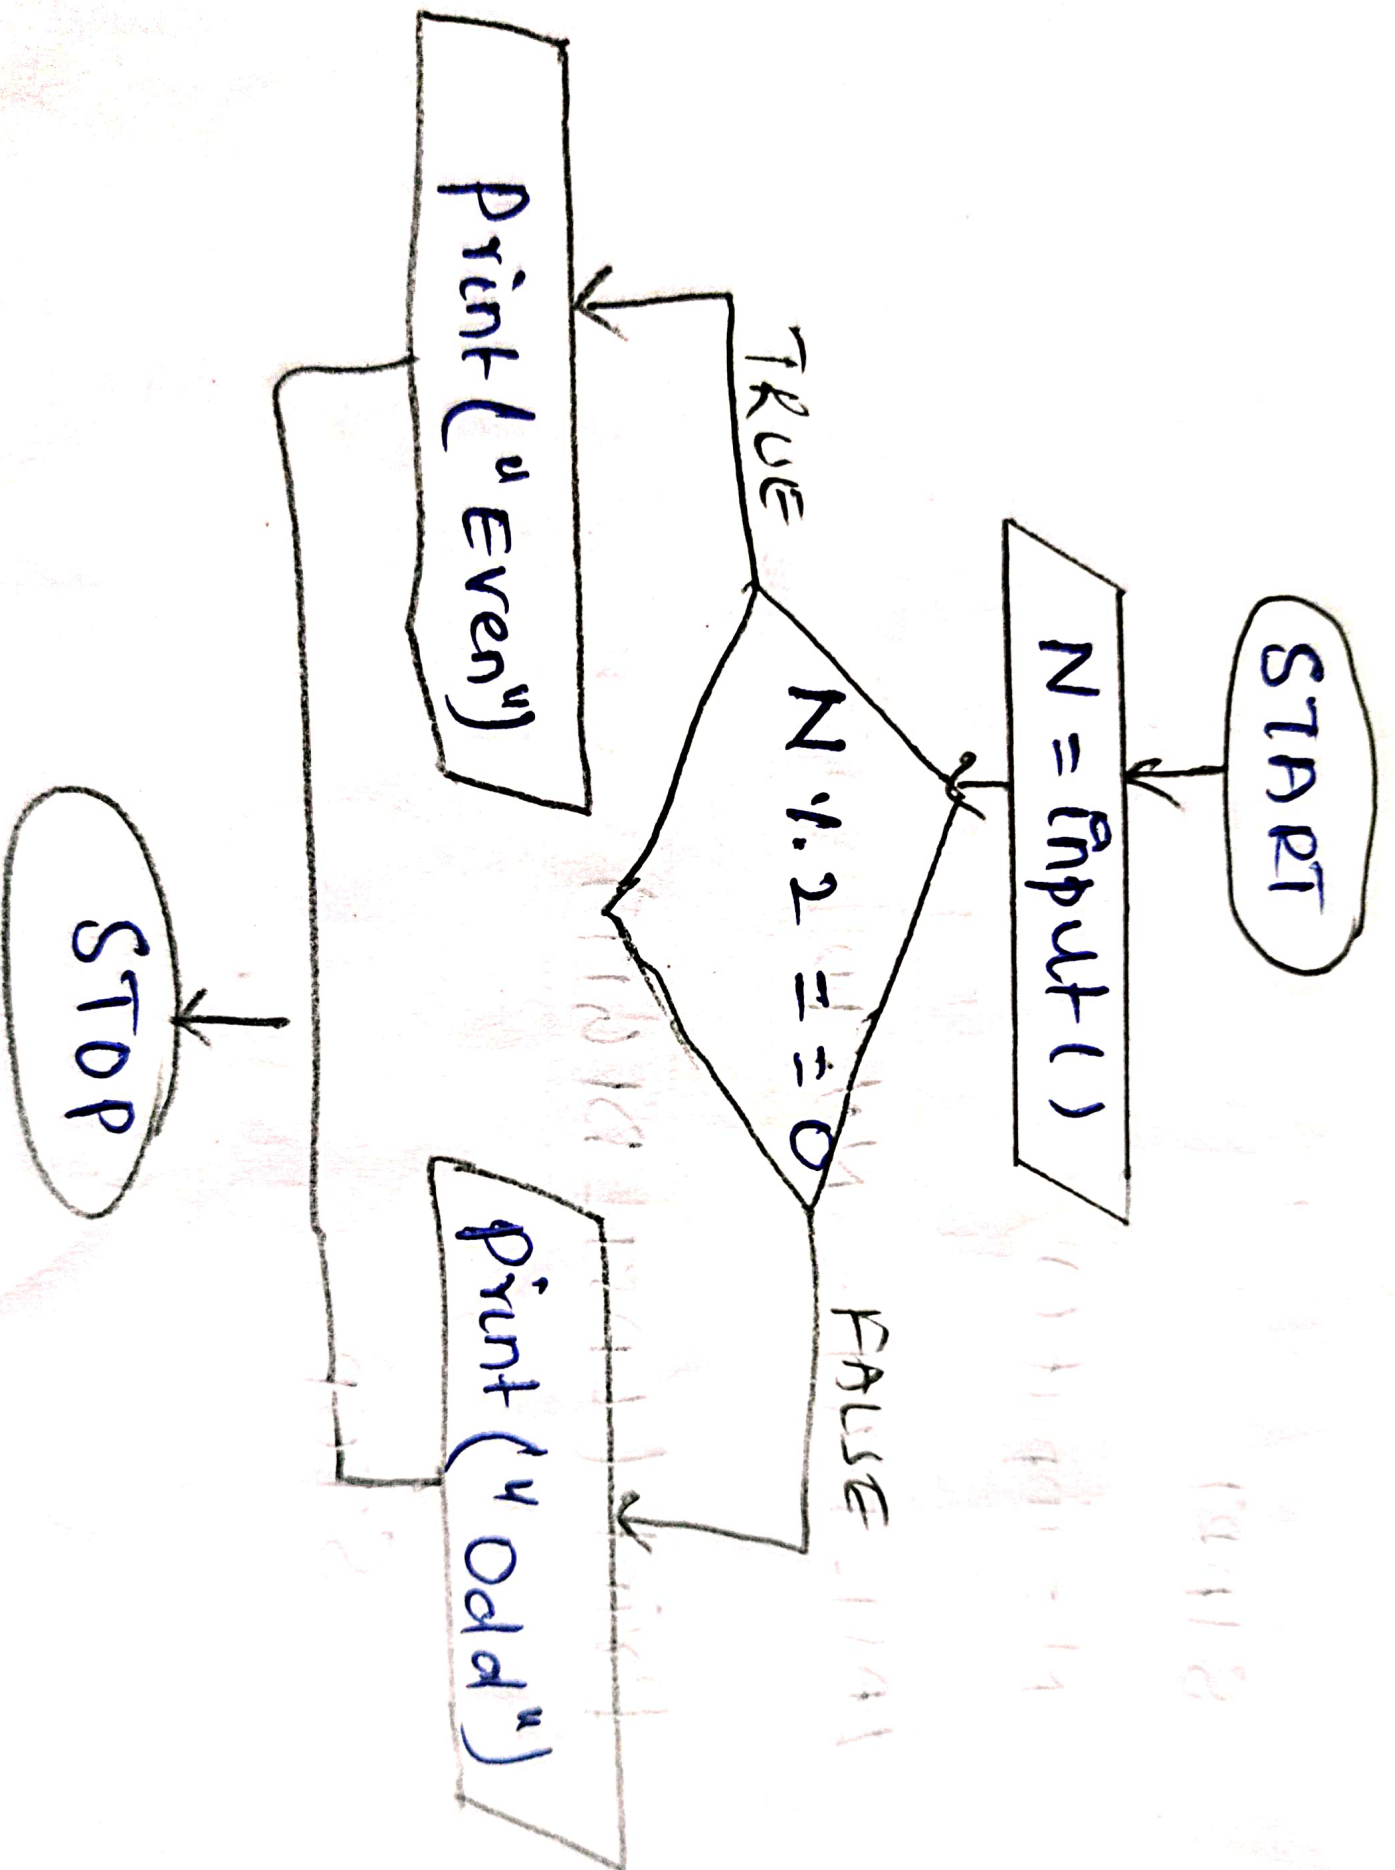 START
N = input()
N % 2 == 0
TRUE
FALSE
print("Even")
print("Odd")
STOP